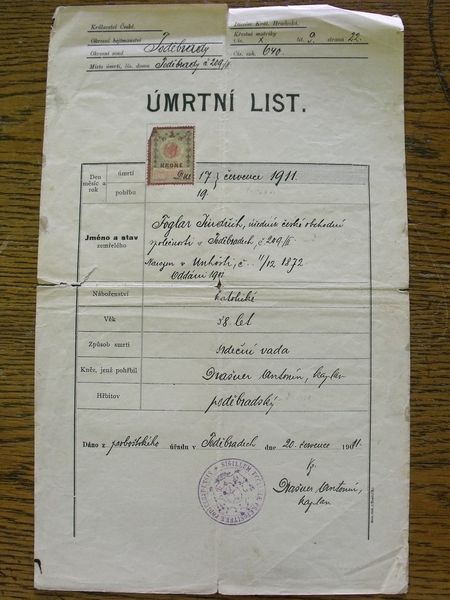 Království České.
Okresní hejtmanství
Okresní soud Poděbrady
Místo úmrtí, čís. domu Poděbrady č 209/II
Diecése Král. Hradecká.
Křestní matriky
čís. X lit. 9. strana 22.
Čís. exh. 640.
ÚMRTNÍ LIST.
KRONE
Den měsíc a rok
úmrtí Dne 17 července 1911.
pohřbu 19.
Jméno a stav zemřelého
Foglar Jindřich, úředník české obchodní
společnosti v Poděbradech, č. 209/II
Narozen v Unhošti, č. 11/12 1872
Oddáni
Náboženství katolické
Věk 38 let
Způsob smrti srdeční vada
Kněz, jenž pohřbil Drašner Antonín, kaplan
Hřbitov poděbradský
Dáno z proboštského úřadu v Poděbradech dne 20. července 1911.
Drašner Antonín,
kaplan